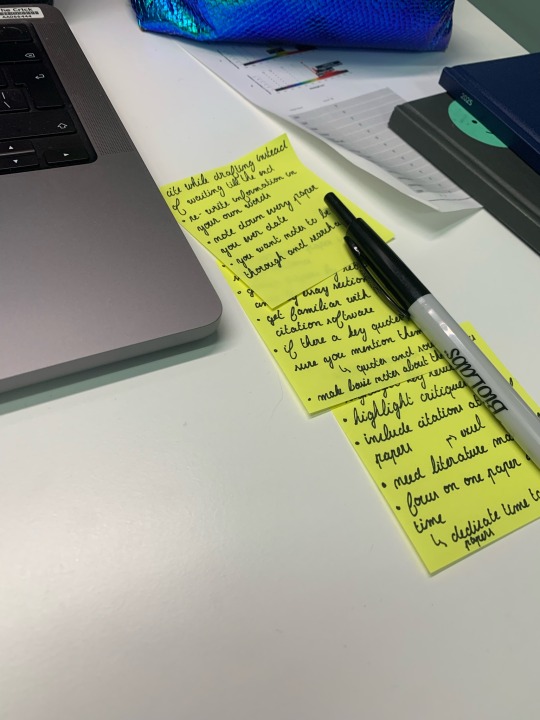 The Crick
2025
cite while drafting instead
of waiting till the end
• re-write information in
your own words
• note down every paper
you ever
• you want notes to be
thorough and
essay
• get familiar with
citation software
• if there a key quote
sure you mention them
↳ quotes and
• make basic notes about the
• highlight critique
• include citations
papers
↱ excel
• need literature
• focus on one paper
time
↳ dedicate time to
papers
BIOLABS